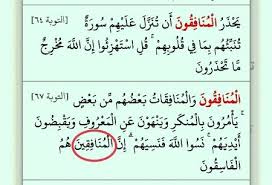 يَحْذَرُ الْمُنَافِقُونَ أَن تُنَزَّلَ عَلَيْهِمْ سُورَةٌ [التوبة ٦٤]
تُنَبِّئُهُم بِمَا فِي قُلُوبِهِمْ ۚ قُلِ اسْتَهْزِئُوا إِنَّ اللَّهَ مُخْرِجٌ
مَّا تَحْذَرُونَ
الْمُنَافِقُونَ وَالْمُنَافِقَاتُ بَعْضُهُم مِّن بَعْضٍ ۚ [التوبة ٦٧]
يَأْمُرُونَ بِالْمُنكَرِ وَيَنْهَوْنَ عَنِ الْمَعْرُوفِ وَيَقْبِضُونَ
أَيْدِيَهُمْ ۚ نَسُوا اللَّهَ فَنَسِيَهُمْ ۗ إِنَّ الْمُنَافِقِينَ هُمُ
الْفَاسِقُونَ